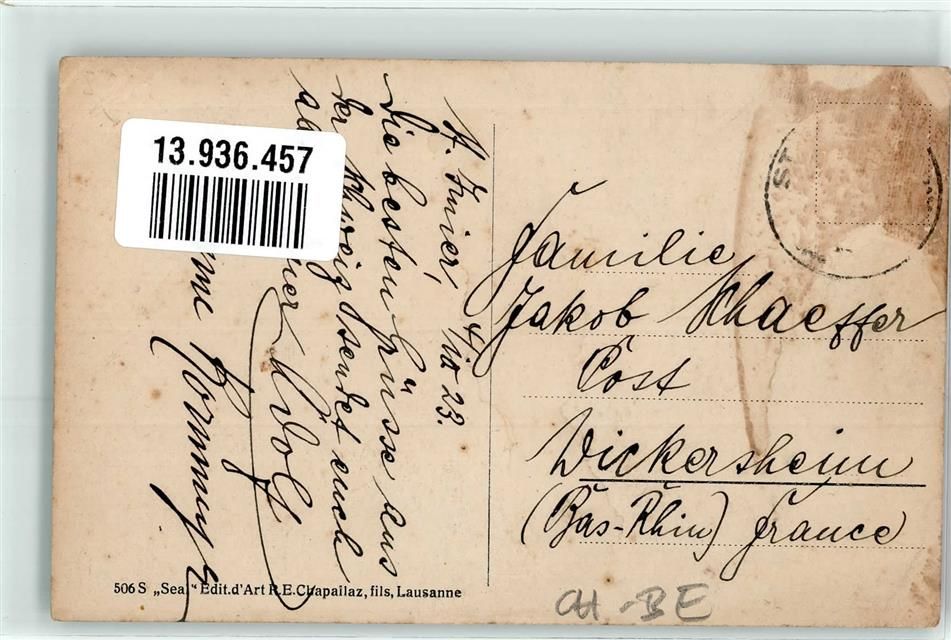 13.936.457
St. Imier, 4/10 23.
Die besten Grüsse aus
der Schweiz sendet euch
Wolf
Familie
Jakob Schaeffer
Post
Wickersheim
(Bas-Rhin) France
506 S „Sea." Edit. d'Art R.E. Chapallaz, fils, Lausanne
CH-BE